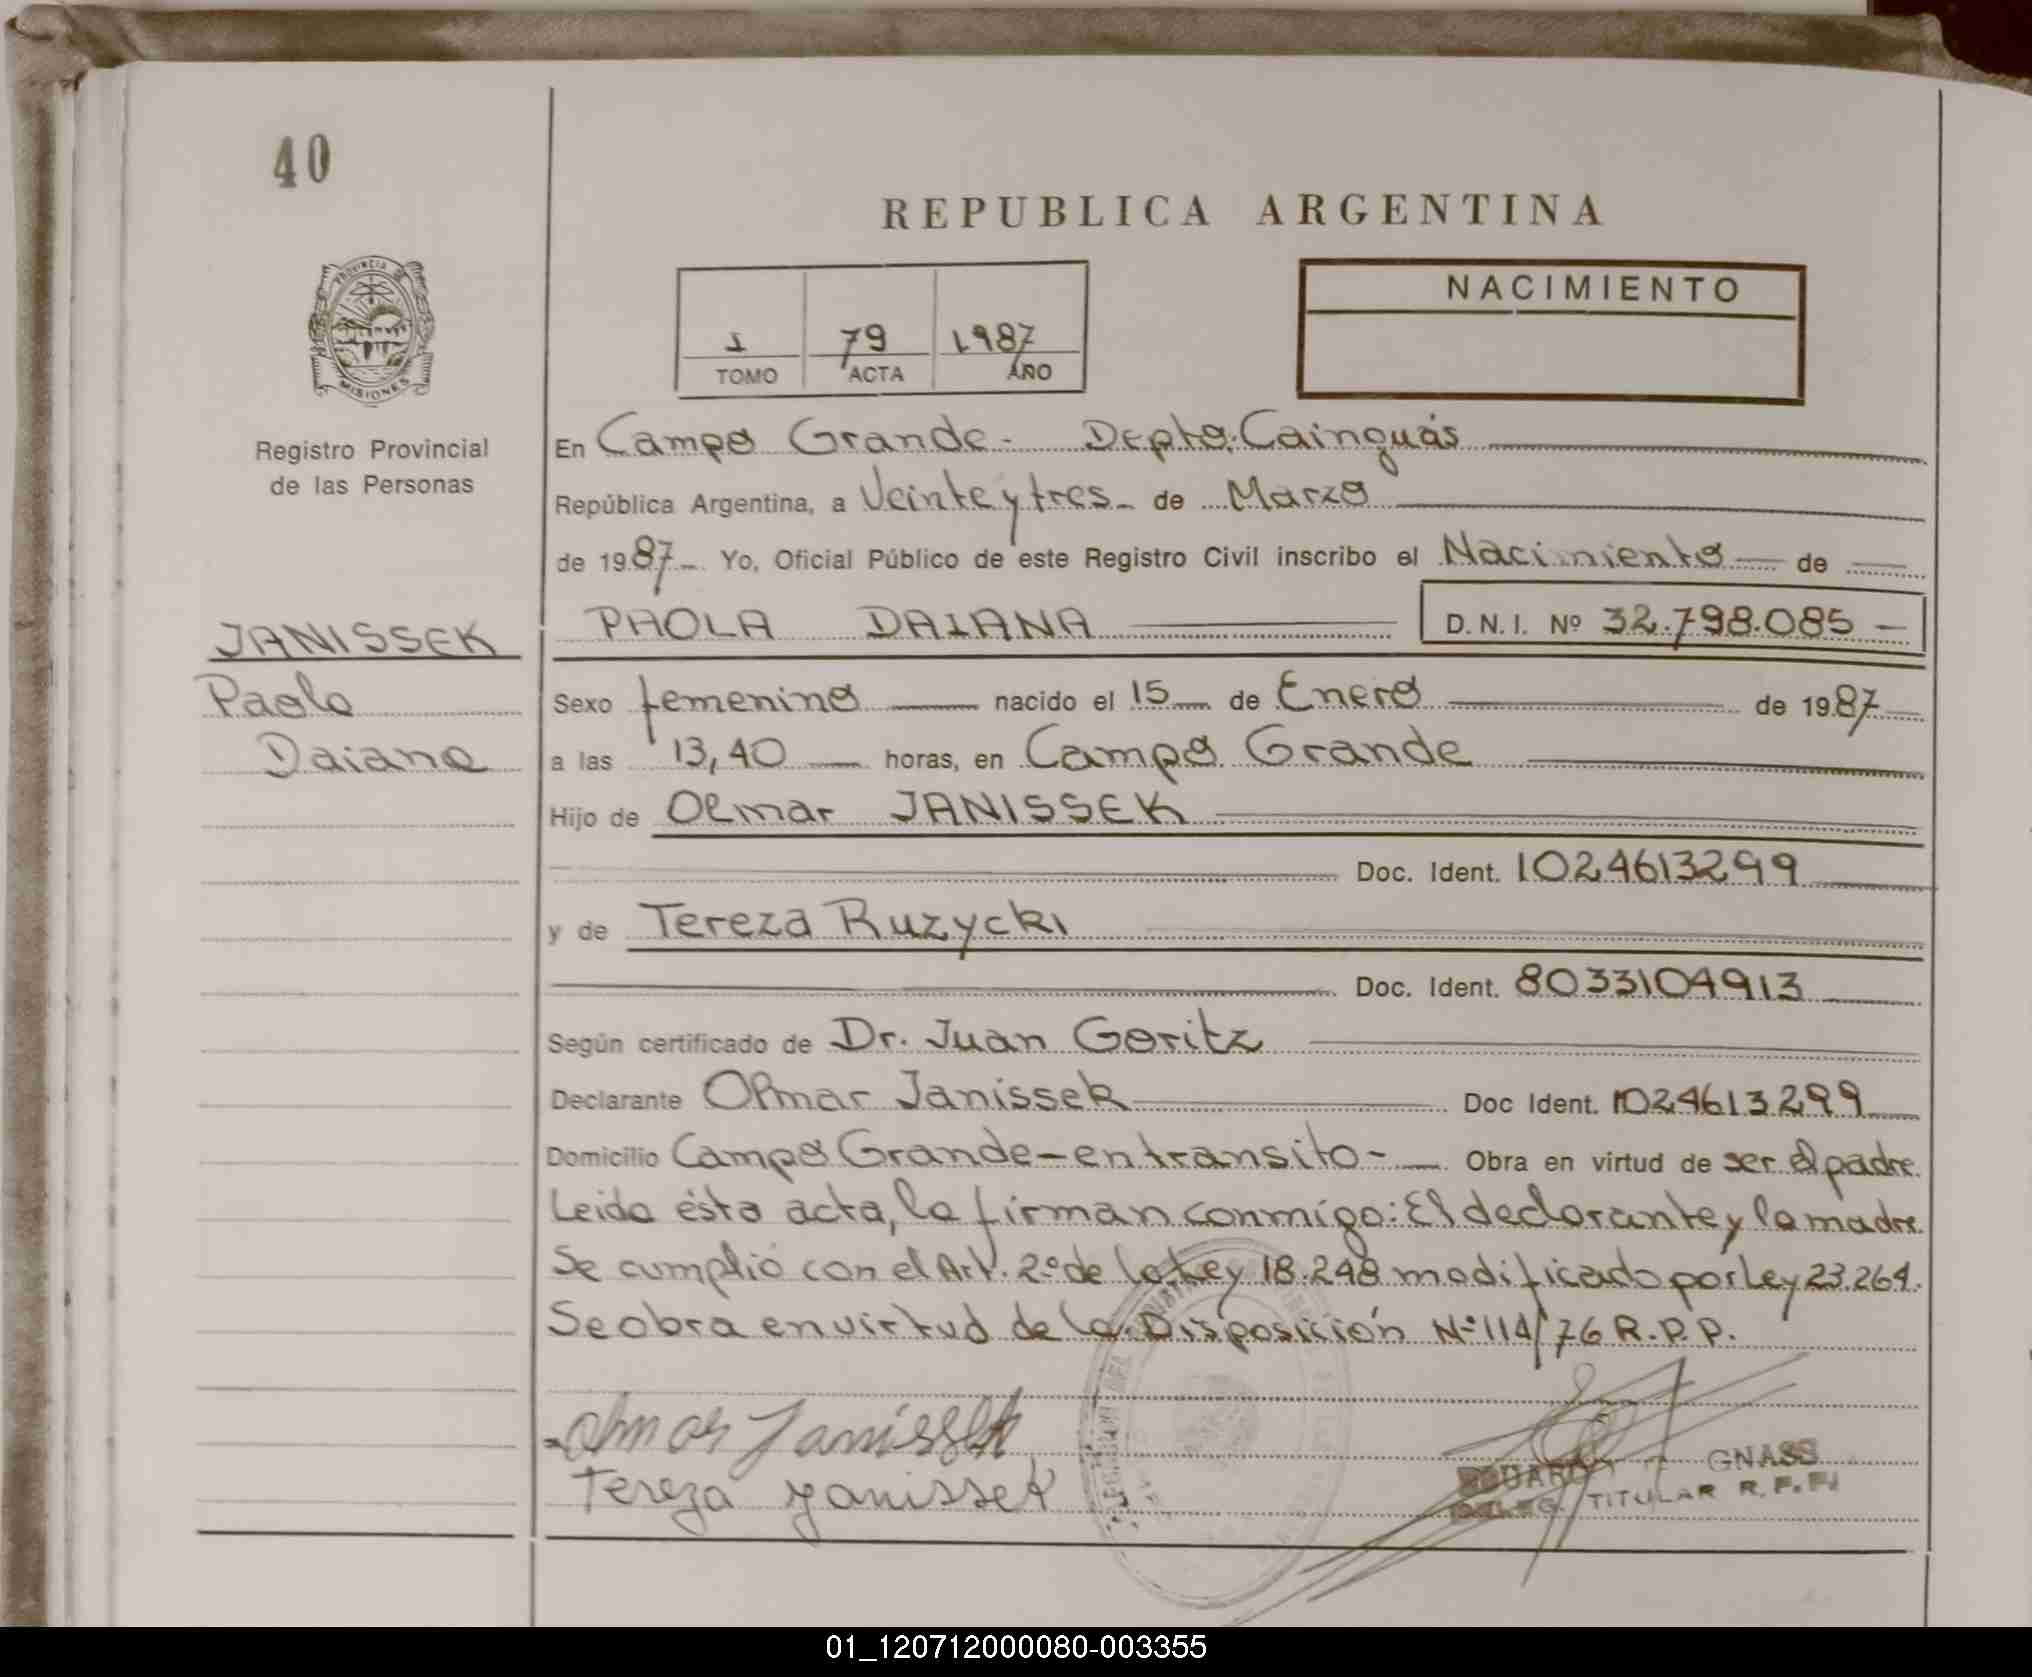 40
REPUBLICA ARGENTINA
PROVINCIA DE
MISIONES
Registro Provincial
de las Personas
I 79 1987
TOMO ACTA AÑO
NACIMIENTO
En Campo Grande.- Depto. Cainguás
República Argentina, a Veinte y tres - de Marzo
de 1987 - Yo, Oficial Público de este Registro Civil inscribo el Nacimiento — de
JANISSEK
Paola
Daiana
PAOLA DAIANA D.N.I. Nº 32.798.085 -
Sexo femenino nacido el 15 de Enero de 1987
a las 13,40 horas, en Campo Grande
Hijo de Olmar JANISSEK
Doc. Ident. 1024613299
y de Tereza Ruzycki
Doc. Ident. 8033104913
Según certificado de Dr. Juan Goritz
Declarante Olmar Janissek Doc Ident. 1024613299
Domicilio Campo Grande - en transito - Obra en virtud de ser el padre.
Leida ésta acta, la firman conmigo: El declarante y la madre.
Se cumplió con el Art. 2º de la Ley 18.248 modificado por Ley 23.264.
Se obra en virtud de la Disposición Nº 114/76 R.P.P.
Olmar Janissek
Tereza Yanissek
GNASS
TITULAR R.P.P.
01_120712000080-003355